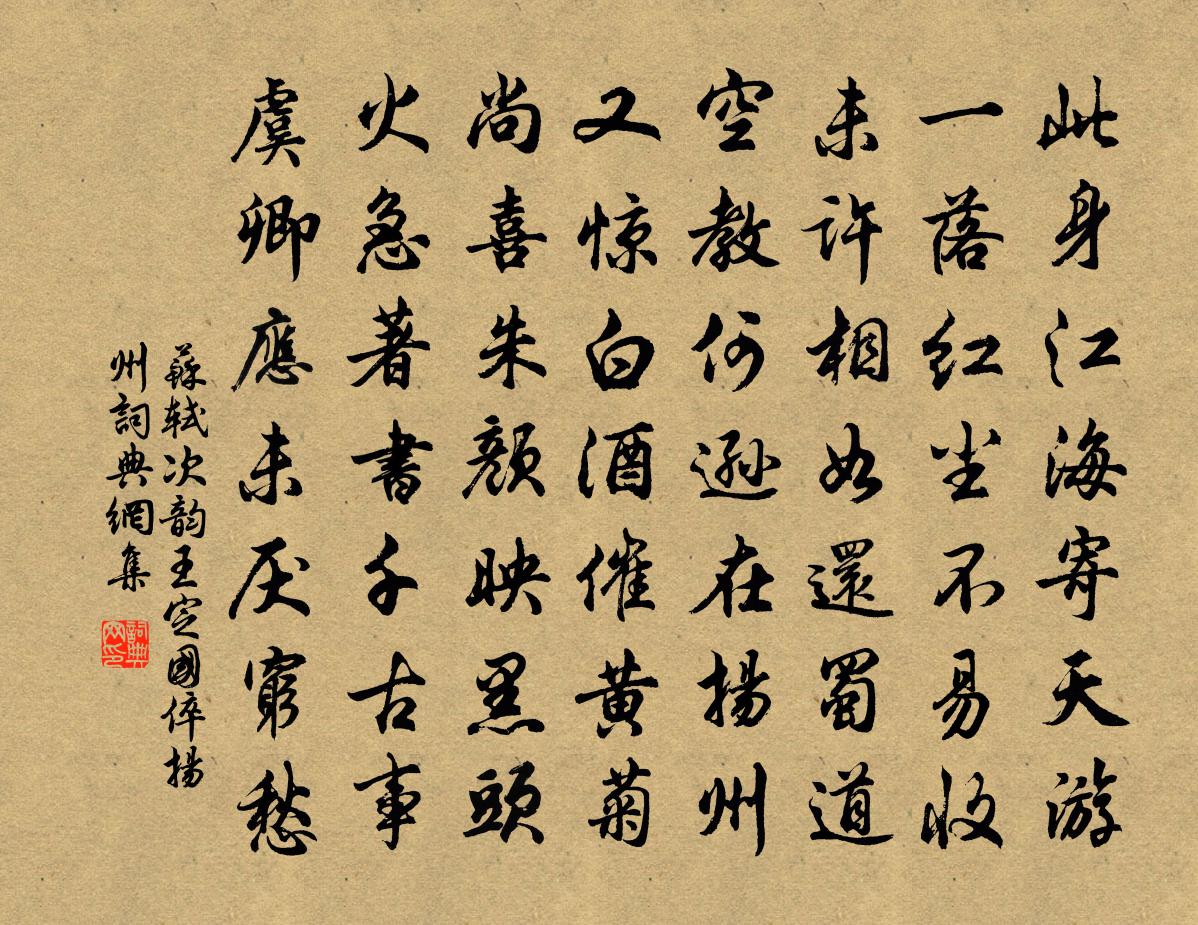 此身江海寄天游
一落红尘不易收
未许相如還蜀道
空教何遜在揚州
又惊白酒催黄菊
尚喜朱顔映黑頭
火急著書千古事
虞卿應未厌窮愁
蘇轼次韵王定國倅揚
州詞典網集
詞典
网印